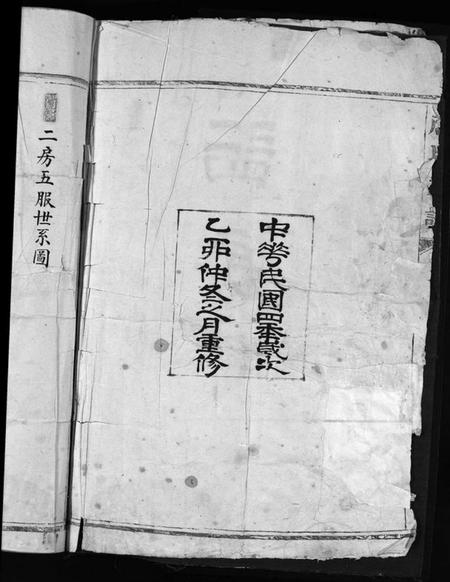 中華民國四年歲次
乙卯仲冬之月重修
二房五服世系圖